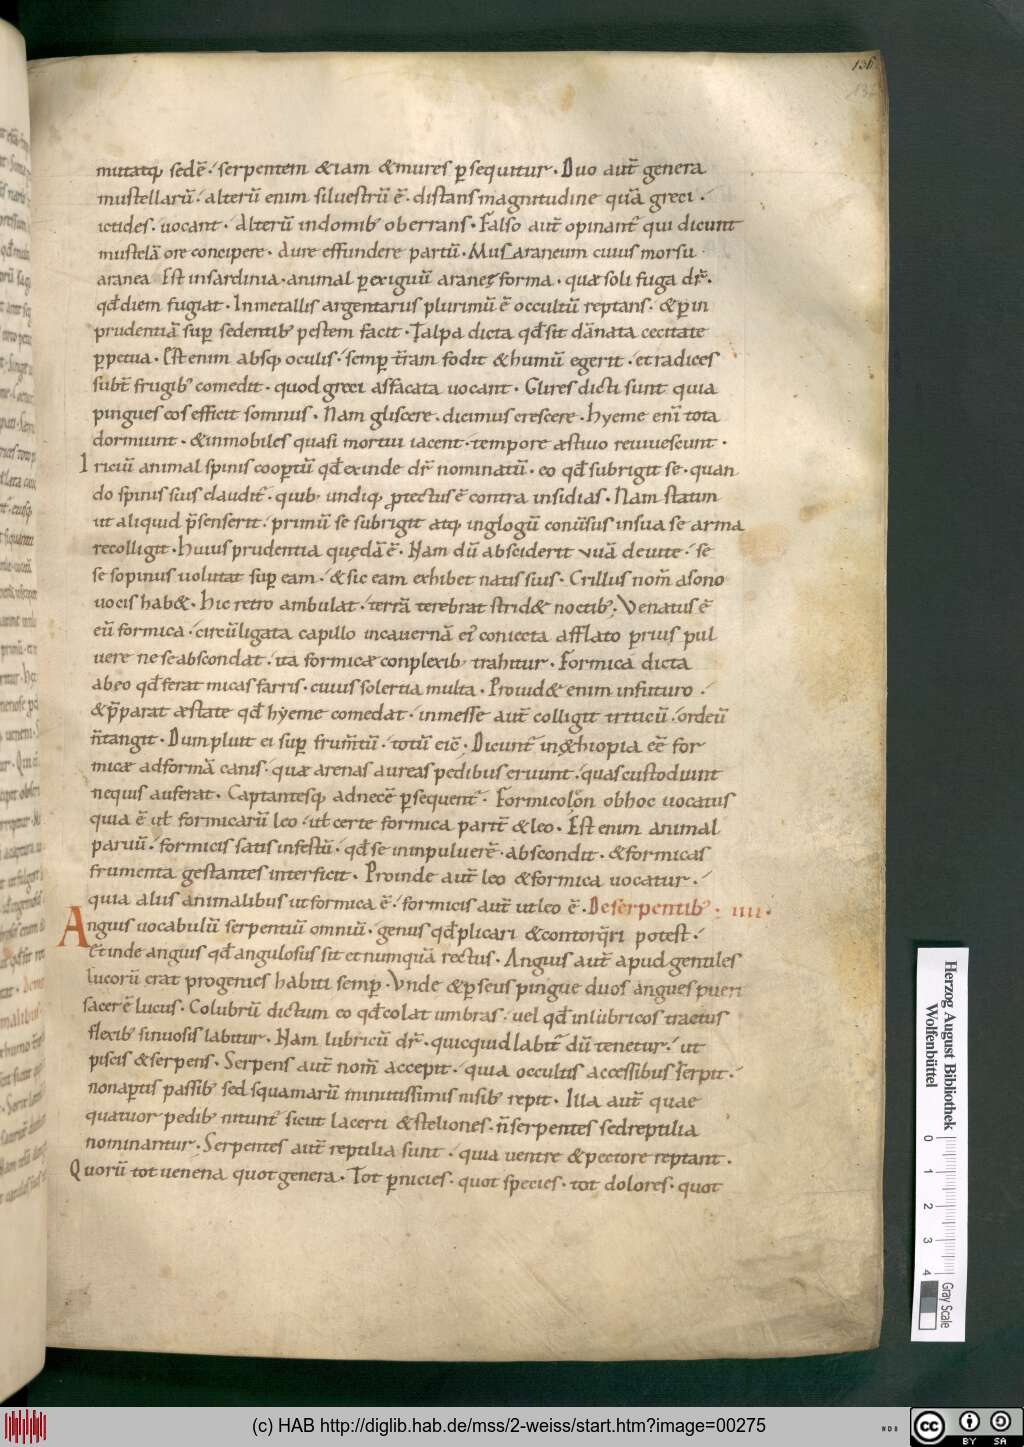 136
137
mutatq; sedē. serpentem &iam &mures ꝑsequitur. Duo aut̄ genera
mustellarū. alterū enim siluestrū ē. distans magnitudine quā greci.
ictides. uocant. Alterū indomib; oberrans. Falso aut̄ opinant̄ qui dicunt
mustelā ore concipere. Aure effundere partū. Mus araneum cuius morsu
aranea Est insardinia. animal ꝑexiguū araneę forma. quæ soli fuga dr̄.
qđ diem fugiat. Inmetallis argentarus plurimū ē occultū reptans. &ꝑ in
prudentiā suꝑ sedentib; pestem facit. Talpa dicta qđ sit dānata cecitate
ꝑpetua. Est enim absq; oculis. semꝑ t̄ram fodit &humū egerit. et radices
subt̄ frugib; comedit. quod greci asfacata uocant. Glires dicti sunt quia
pingues eos efficit somnus. Nam gliscere. dicimus crescere. hyeme enī tota
dormiunt. &inmobiles quasi mortui iacent. tempore æstiuo reuiuescunt.
Iriciū animal spinis coopertū qđ exinde dr̄ nominatū. eo qđ subrigit se. quan
do spinis suis claudit̄. quib; undiq; ꝓtectus ē contra insidias. Nam statim
ut aliquid p̄senserit. primū se subrigit atq; inglogū conūsus insua se arma
recolligit. huius prudentia quędā ē. Nam dū absciderit vuā deuite. se
se sopinus uolutat suꝑ eam. &sic eam exhibet natis suis. Crillus nom̄ asono
uocis hab&. hic retro ambulat. terrā terebrat strid& noctib; Venatus ē
eū formica. circūligata capillo incauernā ei coniecta afflato prius pul
uere ne se abscondat. ita formicæ conplexib; trahitur. Formica dicta
abeo qđ ferat micas farris. cuius solertia multa. Prouid& enim infuturo.
&p̄parat æstate qđ hyeme comedat. inmesse aut̄ colligit triticū. ordeū
n̄ tangit. Dum pluit ei suꝑ frum̄tū. totū eic̄. Dicunt̄ inęthiopia eē for
micæ adformā canis. quæ arenas aureas pedibus eruunt. quas custodiunt
nequis auferat. Captantesq; adnecē ꝑsequent̄. Formicoleon obhoc uocatus
quia ē ut̄ formicarū leo. ut̄ certe formica parit̄ &leo. Est enim animal
paruū. formicis satis infestū. qđ se ininpuluerē. abscondit. &formicas
frumenta gestantes interficit. Proinde aut̄ leo &formica uocatur.
quia aliis animalibus ut formica ē. formicis aut̄ ut leo ē. De serpentib; IIII.
Anguis uocabulū serpentiū omniū. genus qđ plicari &contorq̄ri potest.
Et inde anguis qđ angulosus sit et numquā rectus. Anguis aut̄ apud gentiles
lucorū erat progenies habiti semꝑ. Vnde &ꝑseus pingue duos angues pueri
sacer ē lucus. Colubrū dictum eo qđ colat umbras. uel qđ inlubricos tractus
flexib; sinuosis labitur. Nam lubricū dr̄. quicquid labit̄ dū tenetur. ut
piscis &serpens. Serpens aut̄ nom̄ accepit. quia occultis accessibus serpit.
nonaꝑtis passib; sed squamarū minutissimis nisib; repit. Illa aut̄ quae
quatuor pedib; nitunt̄ sicut lacerti &steliones. n̄ serpentes sedreptilia
nominantur. Serpentes aut̄ reptilia sunt. quia uentre &pectore reptant.
Quorū tot uenena quot genera. Tot ꝑnicies. quot species. tot dolores. quot
Herzog August Bibliothek
Wolfenbüttel
0 1 2 3 4
Gray Scale
(c) HAB http://diglib.hab.de/mss/2-weiss/start.htm?image=00275
WDB
cc BY SA